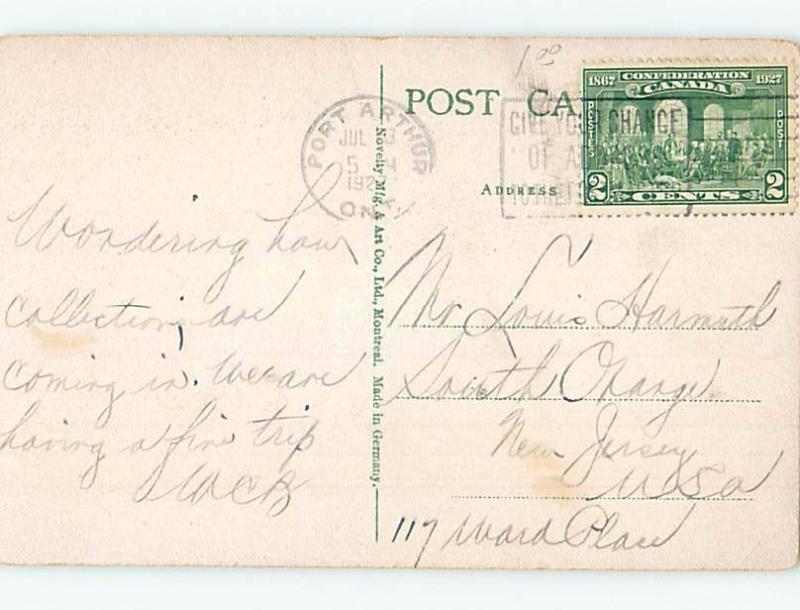 1 00
POST CA
ADDRESS
1867 CONFEDERATION 1927
CANADA
POSTES
POST
2 CENTS 2
PORT ARTHUR
JUL
5
192
ONT
GIVE YOUR CHANGE
OF ADDRESS
TO
Novelty Mfg. & Art Co., Ltd., Montreal. Made in Germany.
Wondering how
collections are
coming in. We are
having a fine trip
Mr Louis Harmuth
South Orange
New Jersey
USA
117 Ward Place